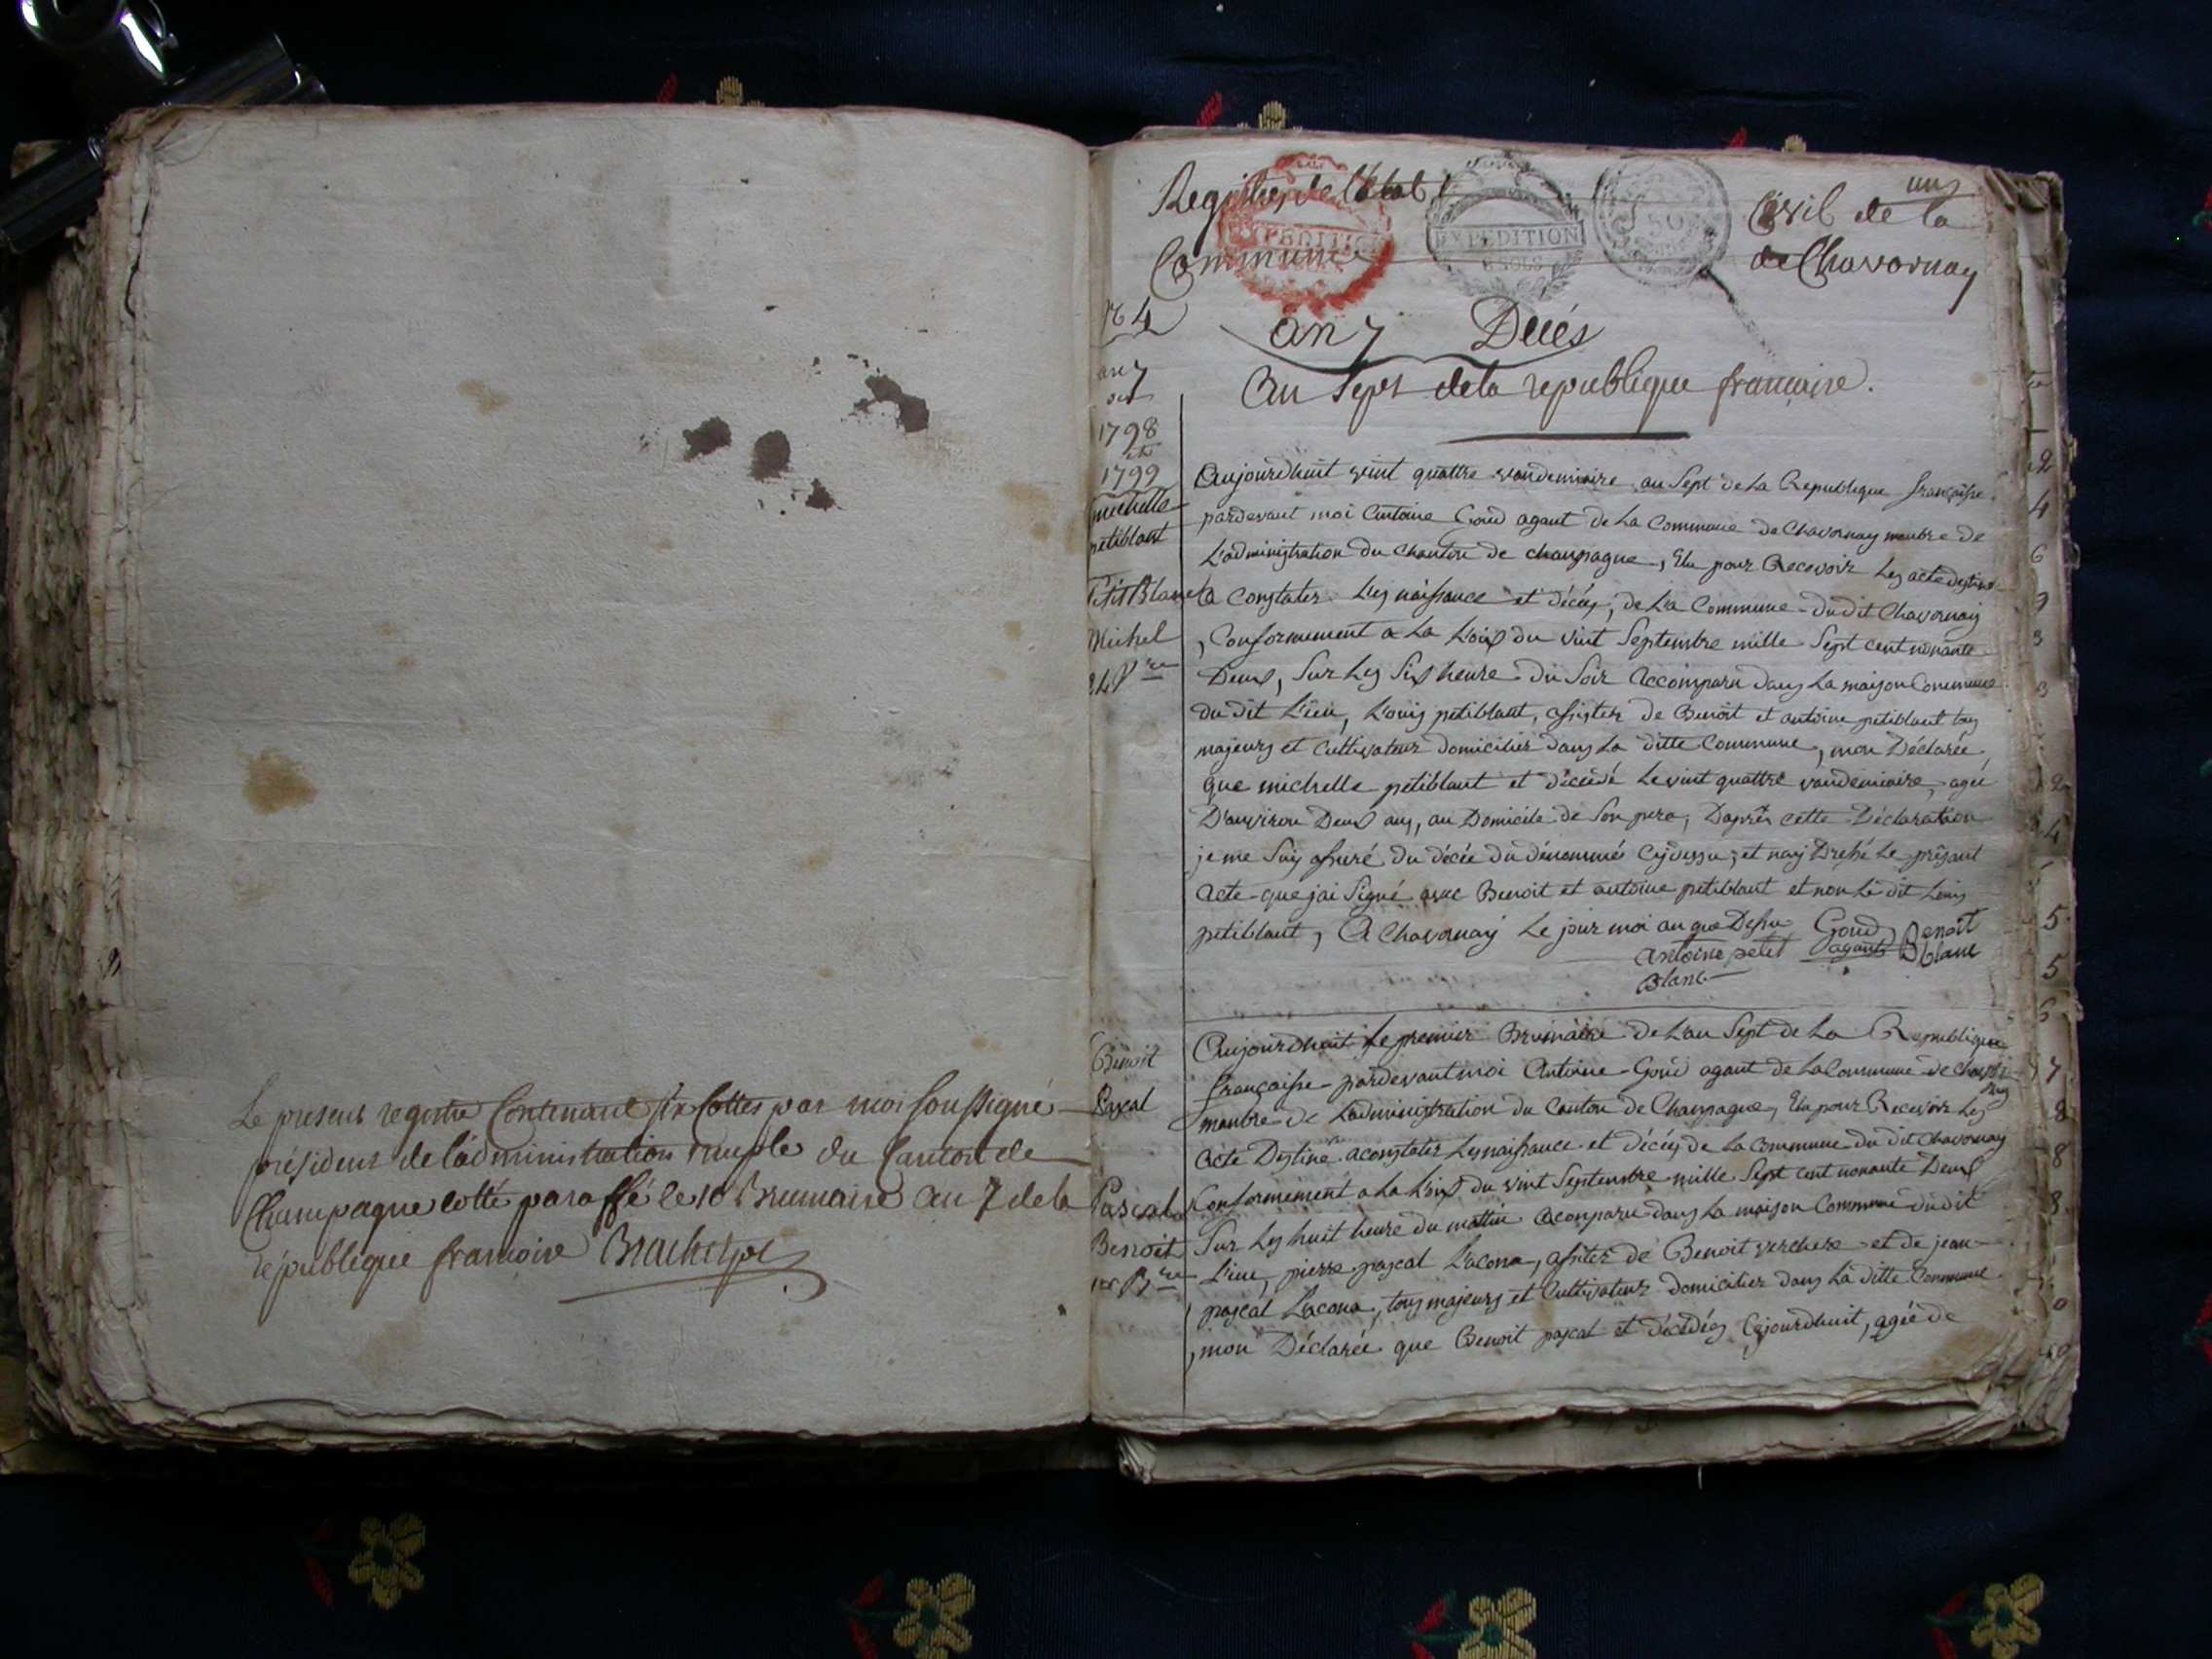 Le present registre Contenant six Cottes par moi soussigné
président de l'administration muple du Canton de
Champagne cotté paraffé le 10 Brumaire an 7 de la
république francoise
uns
Registres de l'état Civil de la
Commune de Chavornay
EXPEDITION
EXPEDITION
50
an 7 Décés
an Sept de la republique francaise.
4
an 7
1798
1799
michelle
petiblant
Petit Blanc
Michel
24 Vre
Aujourdhuit vint quattre vandemiaire an Sept de La Republique françaisse
pardevant moi Antoine Goud agant de La Commune de Chavornay manbre de
L'administration du Chanton de champagne, Elu pour Recevoir Les acte destiné
a Constater Les naissance et décés, de La Commune du dit Chavornay
, Conformement a La Loix du vint Septembre mille Sept cent nonante
Deux, Sur Les Six heure du Soir Accomparu dans La maison Commune
du dit Lieu, Louis petiblant, assister de Benoit et antoine petiblant tous
majeurs et Cultivateur domicilier dans La ditte Commune, mon Déclarée,
que michelle petiblant et décédé Le vint quattre vandemiaire, agé
D'anviron Deux ans, au Domicile de Son pere, Daprês cette Déclaration
je me Suis assuré du décée du dénommés Cydessu, et naj Dressé Le présant
Acte que jai Signé avec Benoit et antoine petiblant et non Le dit Louis
petiblant, A Chavornay Le jour moi an que Dessu Goud Benoit
antoine petit agant Blanc
Blanc
Benoit
Pascal
Pascal
Benoit
1er Bre
Aujourdhuit Le premier Brumaire de L'an Sept de La Republique
françaisse pardevant moi Antoine Goud agant de La Commune de
manbre de L'administration du Canton de Champagne, Elu pour Recevoir Les
acte Destiné a constater Les naissance et décés de La Commune du dit Chavornay
Conformement a La Loix du vint Septembre mille Sept cent nonante Deux
Sur Les huit heure du mattin Acomparu dans La maison Commune dudit
Lieu, pierre pascal Lacona, assiter de Benoit verchere et de jean
pascal Lacona, tous majeurs et Cultivateur domicilier dans La ditte Commune
, mon Déclarée que Benoit pascal et décédés Cejourdhuit, agée de